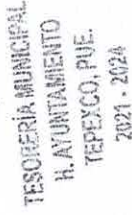 TESORERÍA MUNICIPAL
H. AYUNTAMIENTO
TEPEXCO, PUE.
2021 - 2024